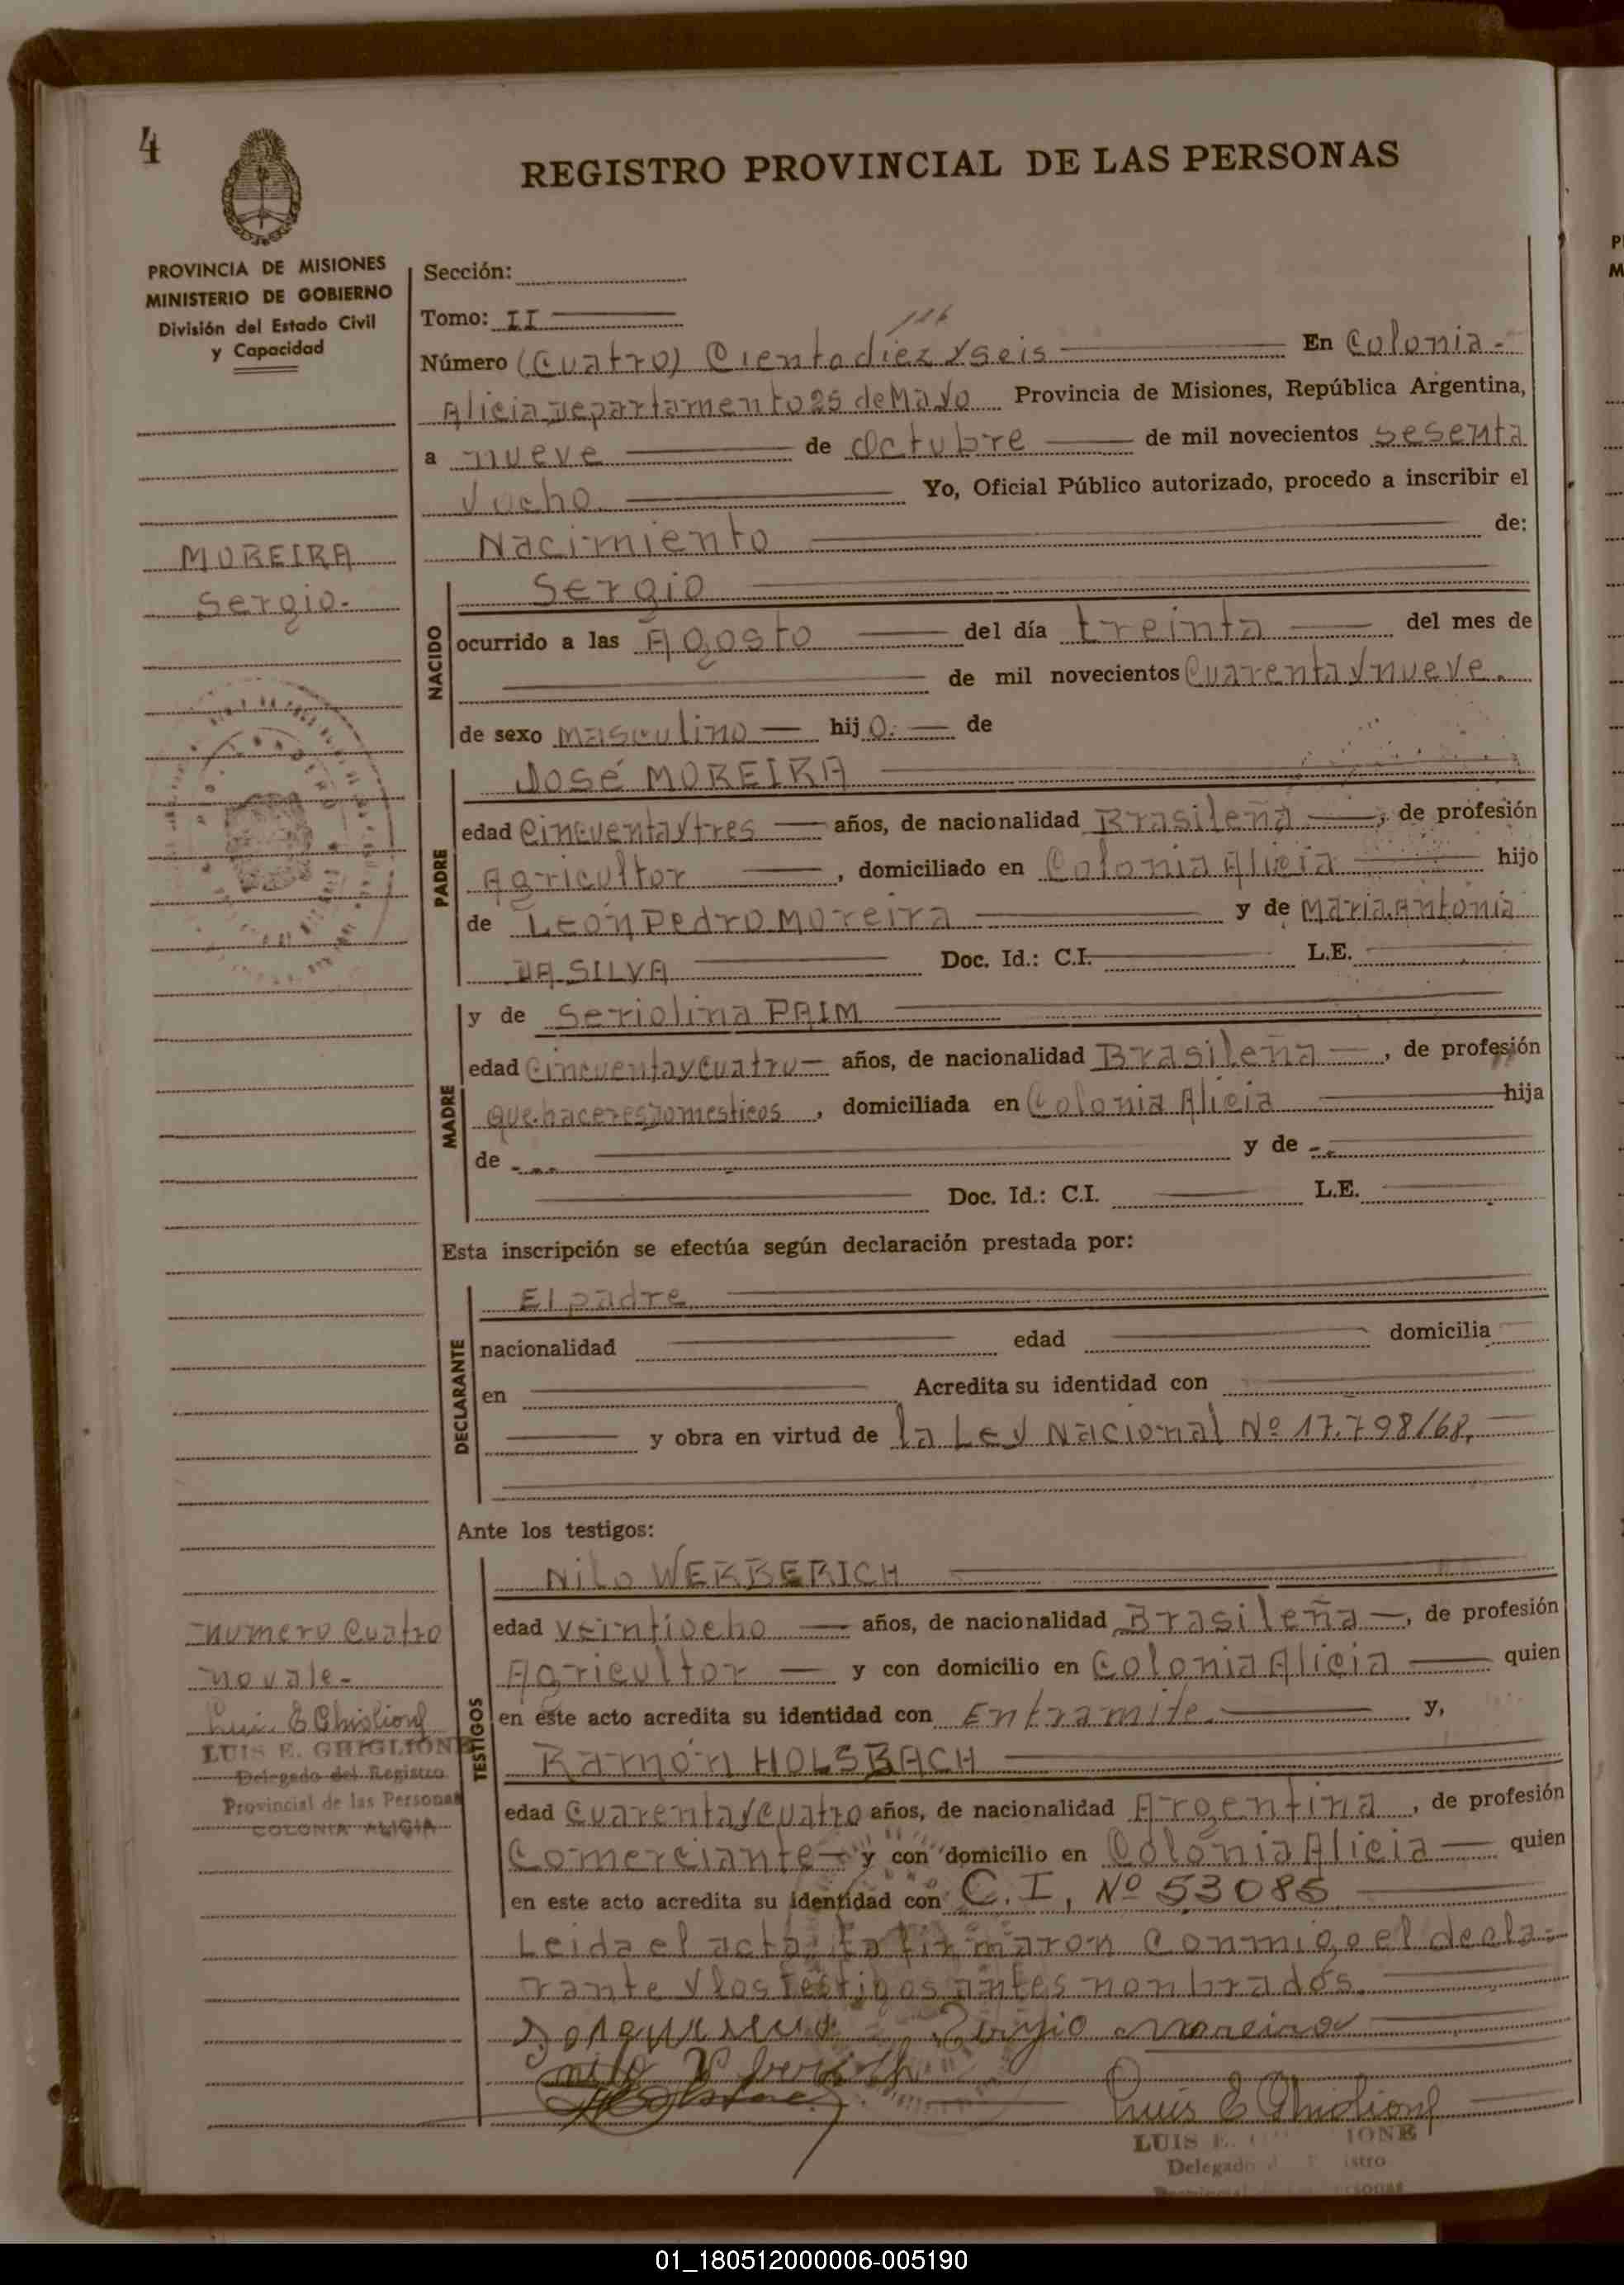 4
REGISTRO PROVINCIAL DE LAS PERSONAS
PROVINCIA DE MISIONES
MINISTERIO DE GOBIERNO
División del Estado Civil
y Capacidad
MOREIRA
Sergio.-
Sección:
Tomo: II
116
Número (Cuatro) Ciento diez y seis En Colonia-
Alicia Departamento 25 de Mayo Provincia de Misiones, República Argentina,
a nueve de Octubre de mil novecientos sesenta
y ocho. Yo, Oficial Público autorizado, procedo a inscribir el
Nacimiento de:
NACIDO
Sergio
ocurrido a las Agosto del día treinta del mes de
de mil novecientos Cuarenta y nueve.
de sexo masculino hijo. de
PADRE
José MOREIRA
edad Cincuenta y tres años, de nacionalidad Brasileña, de profesión
Agricultor, domiciliado en Colonia Alicia hijo
de León Pedro Moreira y de Maria Antonia
DA SILVA Doc. Id.: C.I. L.E.
MADRE
y de Seriolina PAIM
edad Cincuenta y cuatro años, de nacionalidad Brasileña, de profesión
que haceres domesticos, domiciliada en Colonia Alicia hija
de - - - y de - -
Doc. Id.: C.I. L.E.
Esta inscripción se efectúa según declaración prestada por:
DECLARANTE
El padre
nacionalidad edad domicilia
en Acredita su identidad con
y obra en virtud de la Ley Nacional Nº 17.798/68,
Ante los testigos:
TESTIGOS
Nilo WERBERICH
edad Veintiocho años, de nacionalidad Brasileña, de profesión
Agricultor y con domicilio en Colonia Alicia quien
en este acto acredita su identidad con En tramite. y,
Ramón HOLSBACH
edad Cuarenta y cuatro años, de nacionalidad Argentina, de profesión
Comerciante y con domicilio en Colonia Alicia quien
en este acto acredita su identidad con C.I. Nº 53086
Leida el acta, la firmaron conmigo el decla-
rante y los testigos antes nonbrados.
Sergio Moreira
Luis E Ghiglione
LUIS E. IONE
Delegado
numero Cuatro
no vale-
Luis E Ghiglione
LUIS E. GHIGLIONE
Delegado del Registro
Provincial de las Personas
COLONIA ALICIA
01_180512000006-005190